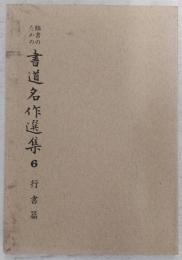 臨書の
ための
書道名作選集
6
行書篇